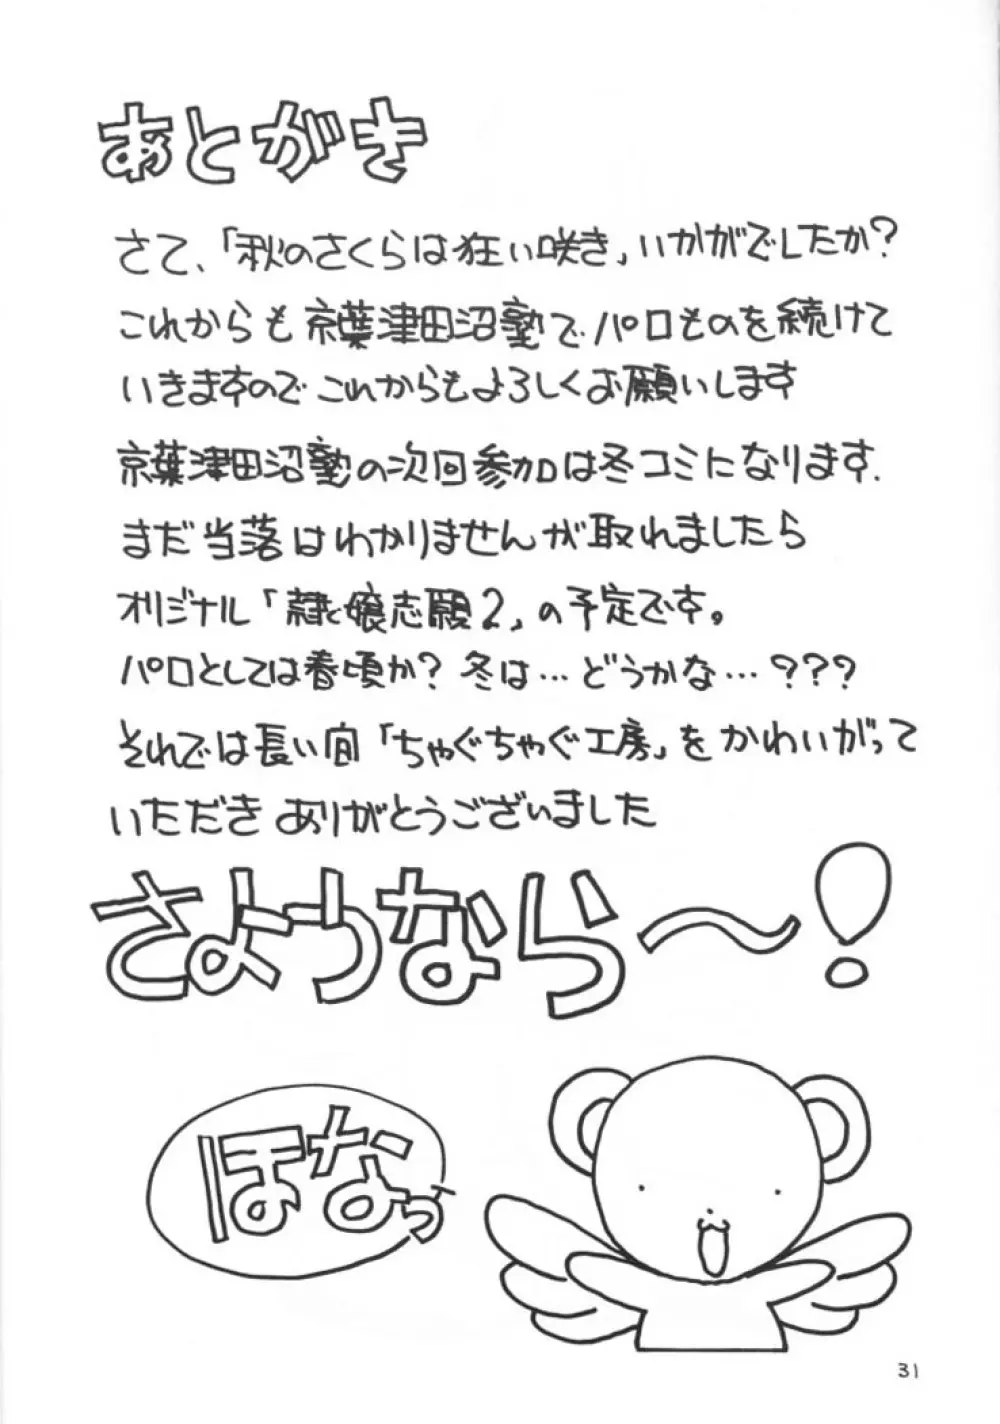 あとがき
さて、「秋のさくらは狂い咲き」いかがでしたか?
これからも京葉津田沼塾でパロものを続けて
いきますのでこれからもよろしくお願いします
京葉津田沼塾の次回参加は冬コミになります.
まだ当落はわかりませんが取れましたら
オリジナル「隷嬢志願2」の予定です。
パロとしては春頃か?冬は…どうかな…???
それでは長い間「ちゃぐちゃぐ工房」をかわいがって
いただきありがとうございました
さようなら〜!
ほなっ
31